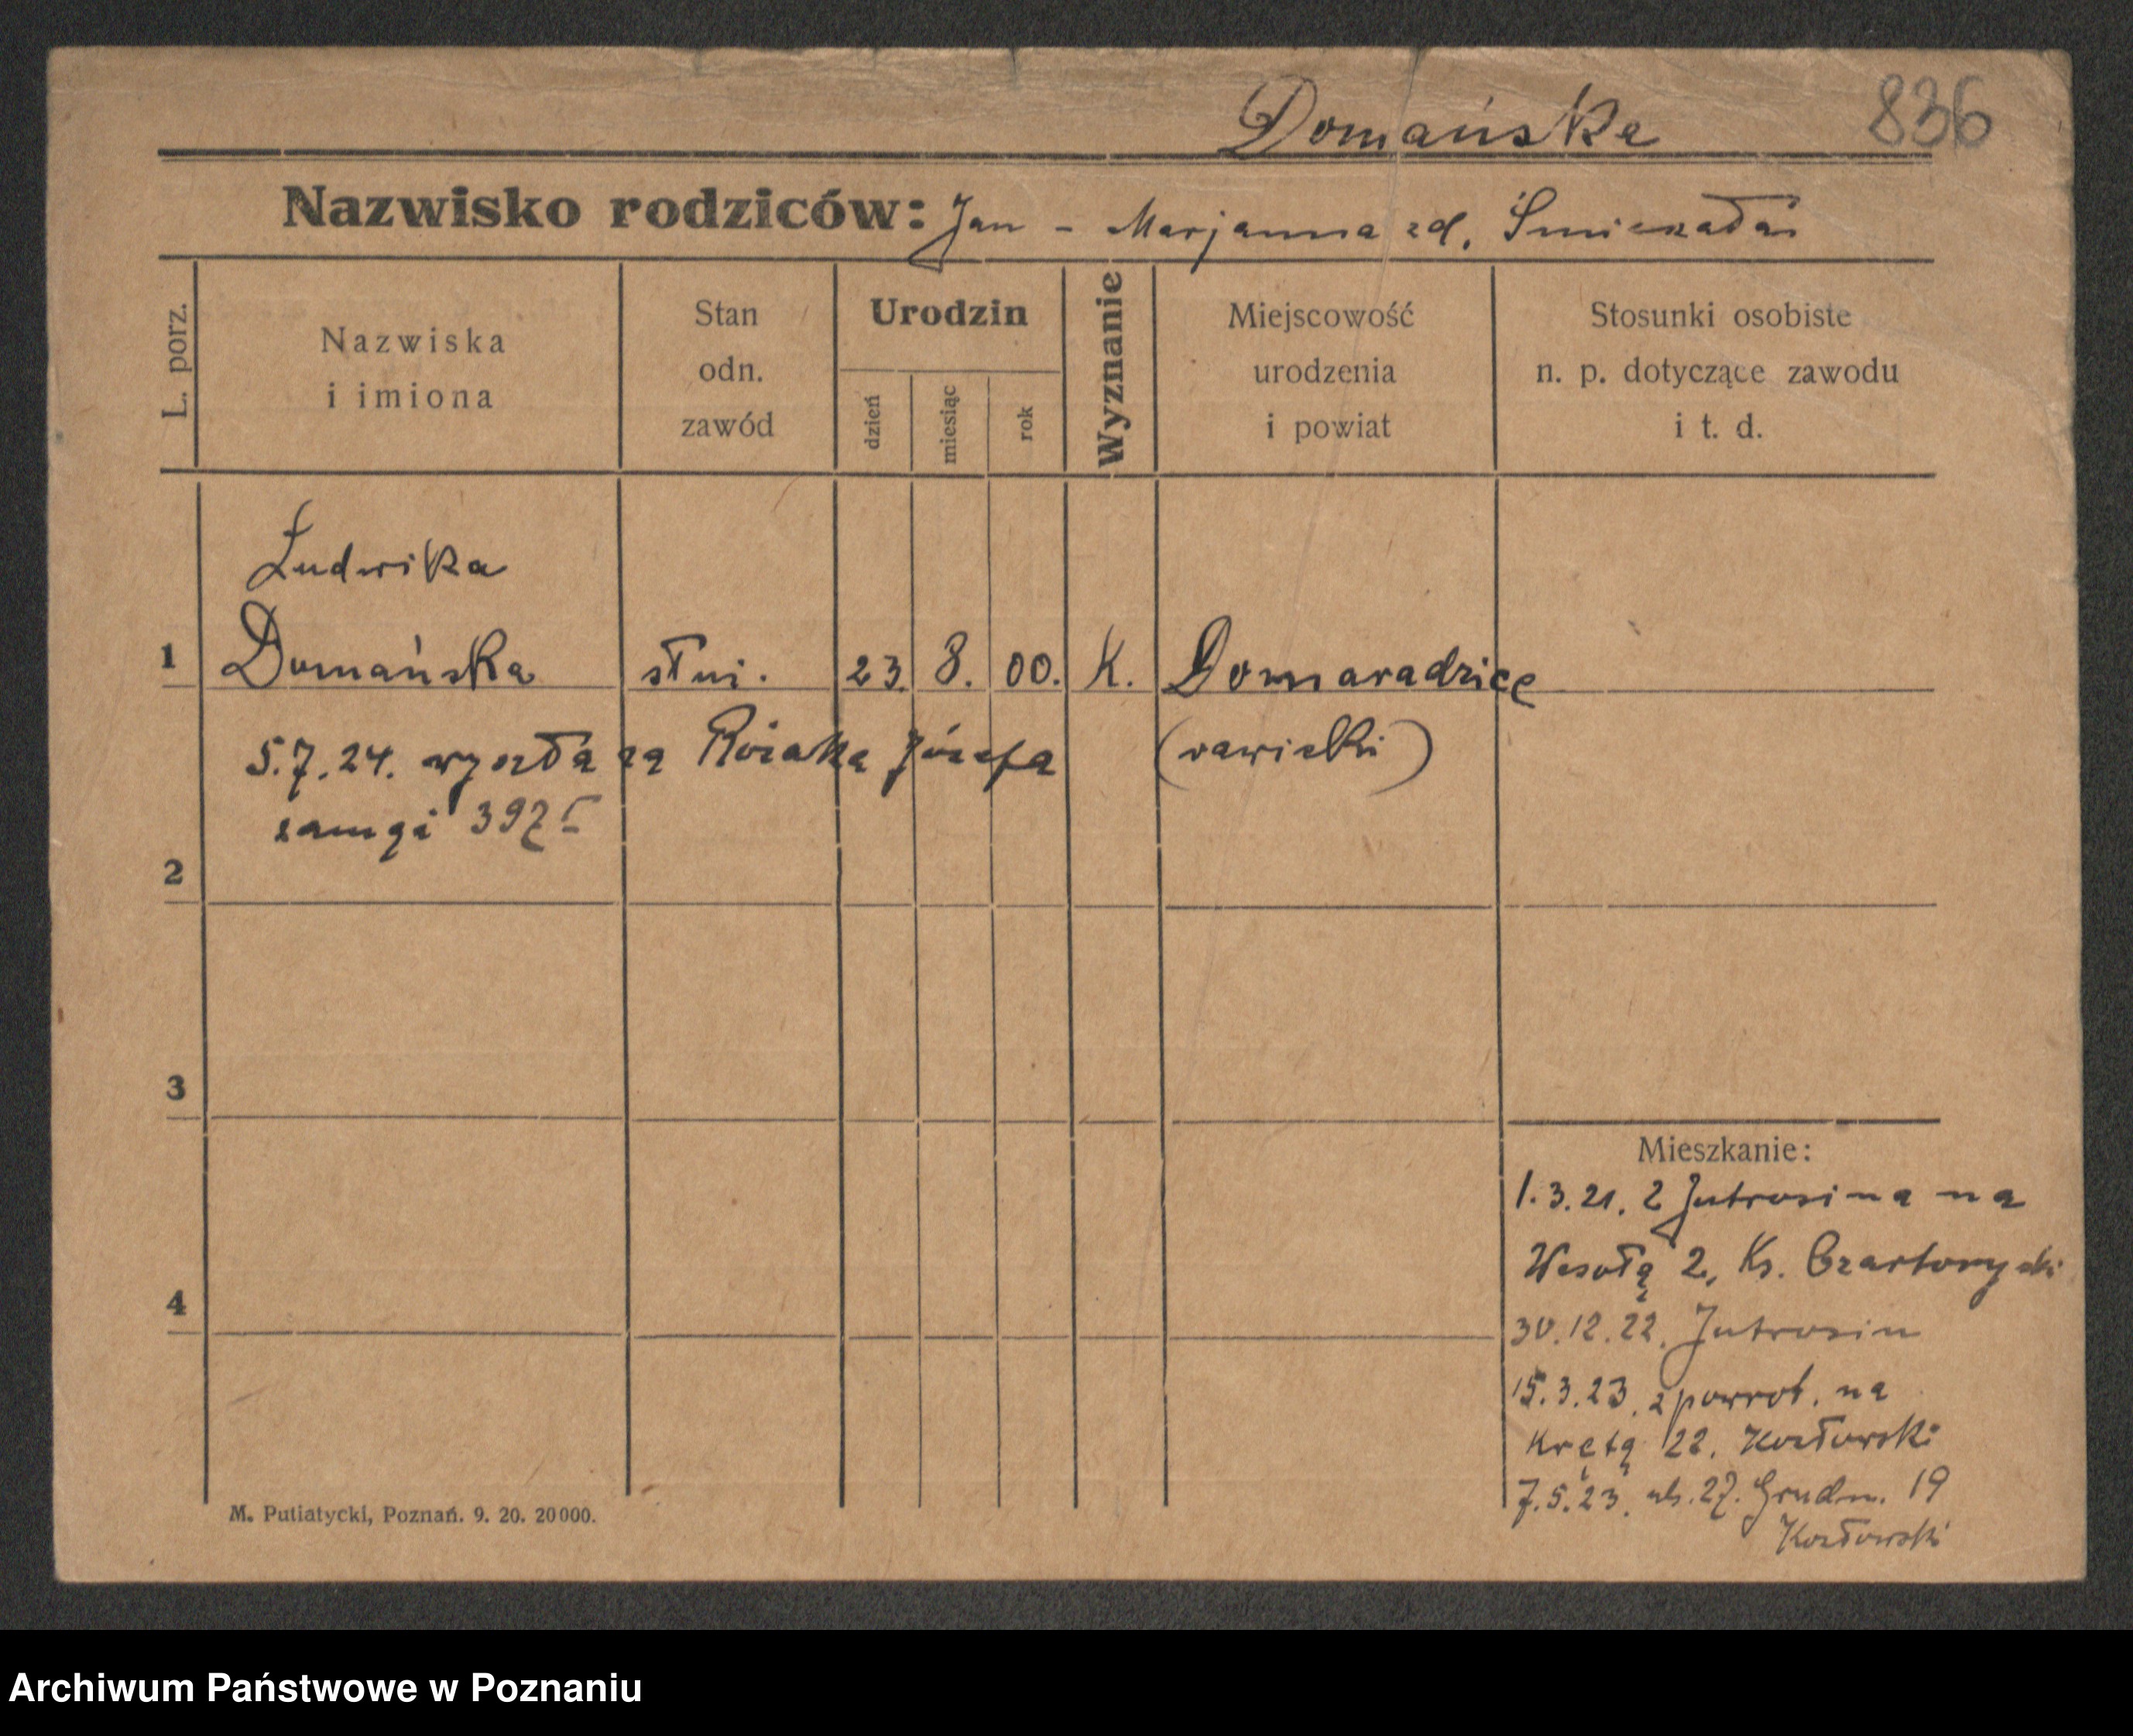 Domańska 836
Nazwisko rodziców: Jan - Marjanna zd.
L. porz.
Nazwiska
i imiona
Stan
odn.
zawód
Urodzin
dzień
miesiąc
rok
Wyznanie
Miejscowość
urodzenia
i powiat
Stosunki osobiste
n. p. dotyczące zawodu
i t. d.
Ludwika
1 Domańska służ. 23. 8. 00. K. Domaradzice
5.7.24. wyszła za Józefa (rawicki)
2
3
4
Mieszkanie:
1.3.21. z Jutrosina na
Wesołą 2, Ks. Czartoryski
30.12.22. Jutrosin
15.3.23. z powrot. na
Krętą 22. Kozłowski
7.5.23. ul. 27. Grudn. 19
Kozłowski
M. Putiatycki, Poznań. 9. 20. 20000.
Archiwum Państwowe w Poznaniu